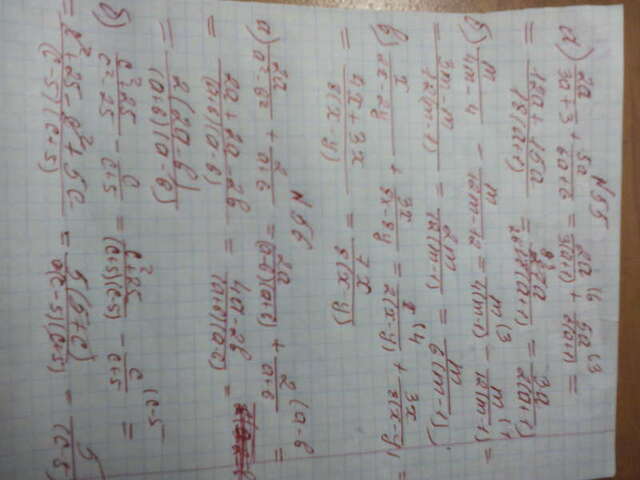 N 55
а) 2a/(3a+3) + 5a/(6a+6) = 2a/(3(a+1)) (6 + 5a/(6(a+1)) (3 =
= (12a+15a)/(18(a+1)) = 27a/(18(a+1)) = 3a/(2(a+1))
б) m/(4m-4) - m/(12m-12) = m/(4(m-1)) (3 - m/(12(m-1)) (1 =
= (3m-m)/(12(m-1)) = 2m/(12(m-1)) = m/(6(m-1))
в) x/(2x-2y) + 3x/(8x-8y) = x/(2(x-y)) (4 + 3x/(8(x-y)) =
= (4x+3x)/(8(x-y)) = 7x/(8(x-y))
N 56
а) 2a/(a²-b²) + 2/(a+b) = 2a/((a-b)(a+b)) + 2/(a+b) (a-b =
= (2a+2a-2b)/((a+b)(a-b)) = (4a-2b)/((a+b)(a-b)) =
= 2(2a-b)/((a+b)(a-b))
б) (c²+25)/(c²-25) - c/(c+5) = (c²+25)/((c-5)(c+5)) - c/(c+5) (c-5 =
= (c²+25-c²+5c)/((c-5)(c+5)) = 5(5+c)/((c-5)(c+5)) = 5/(c-5)